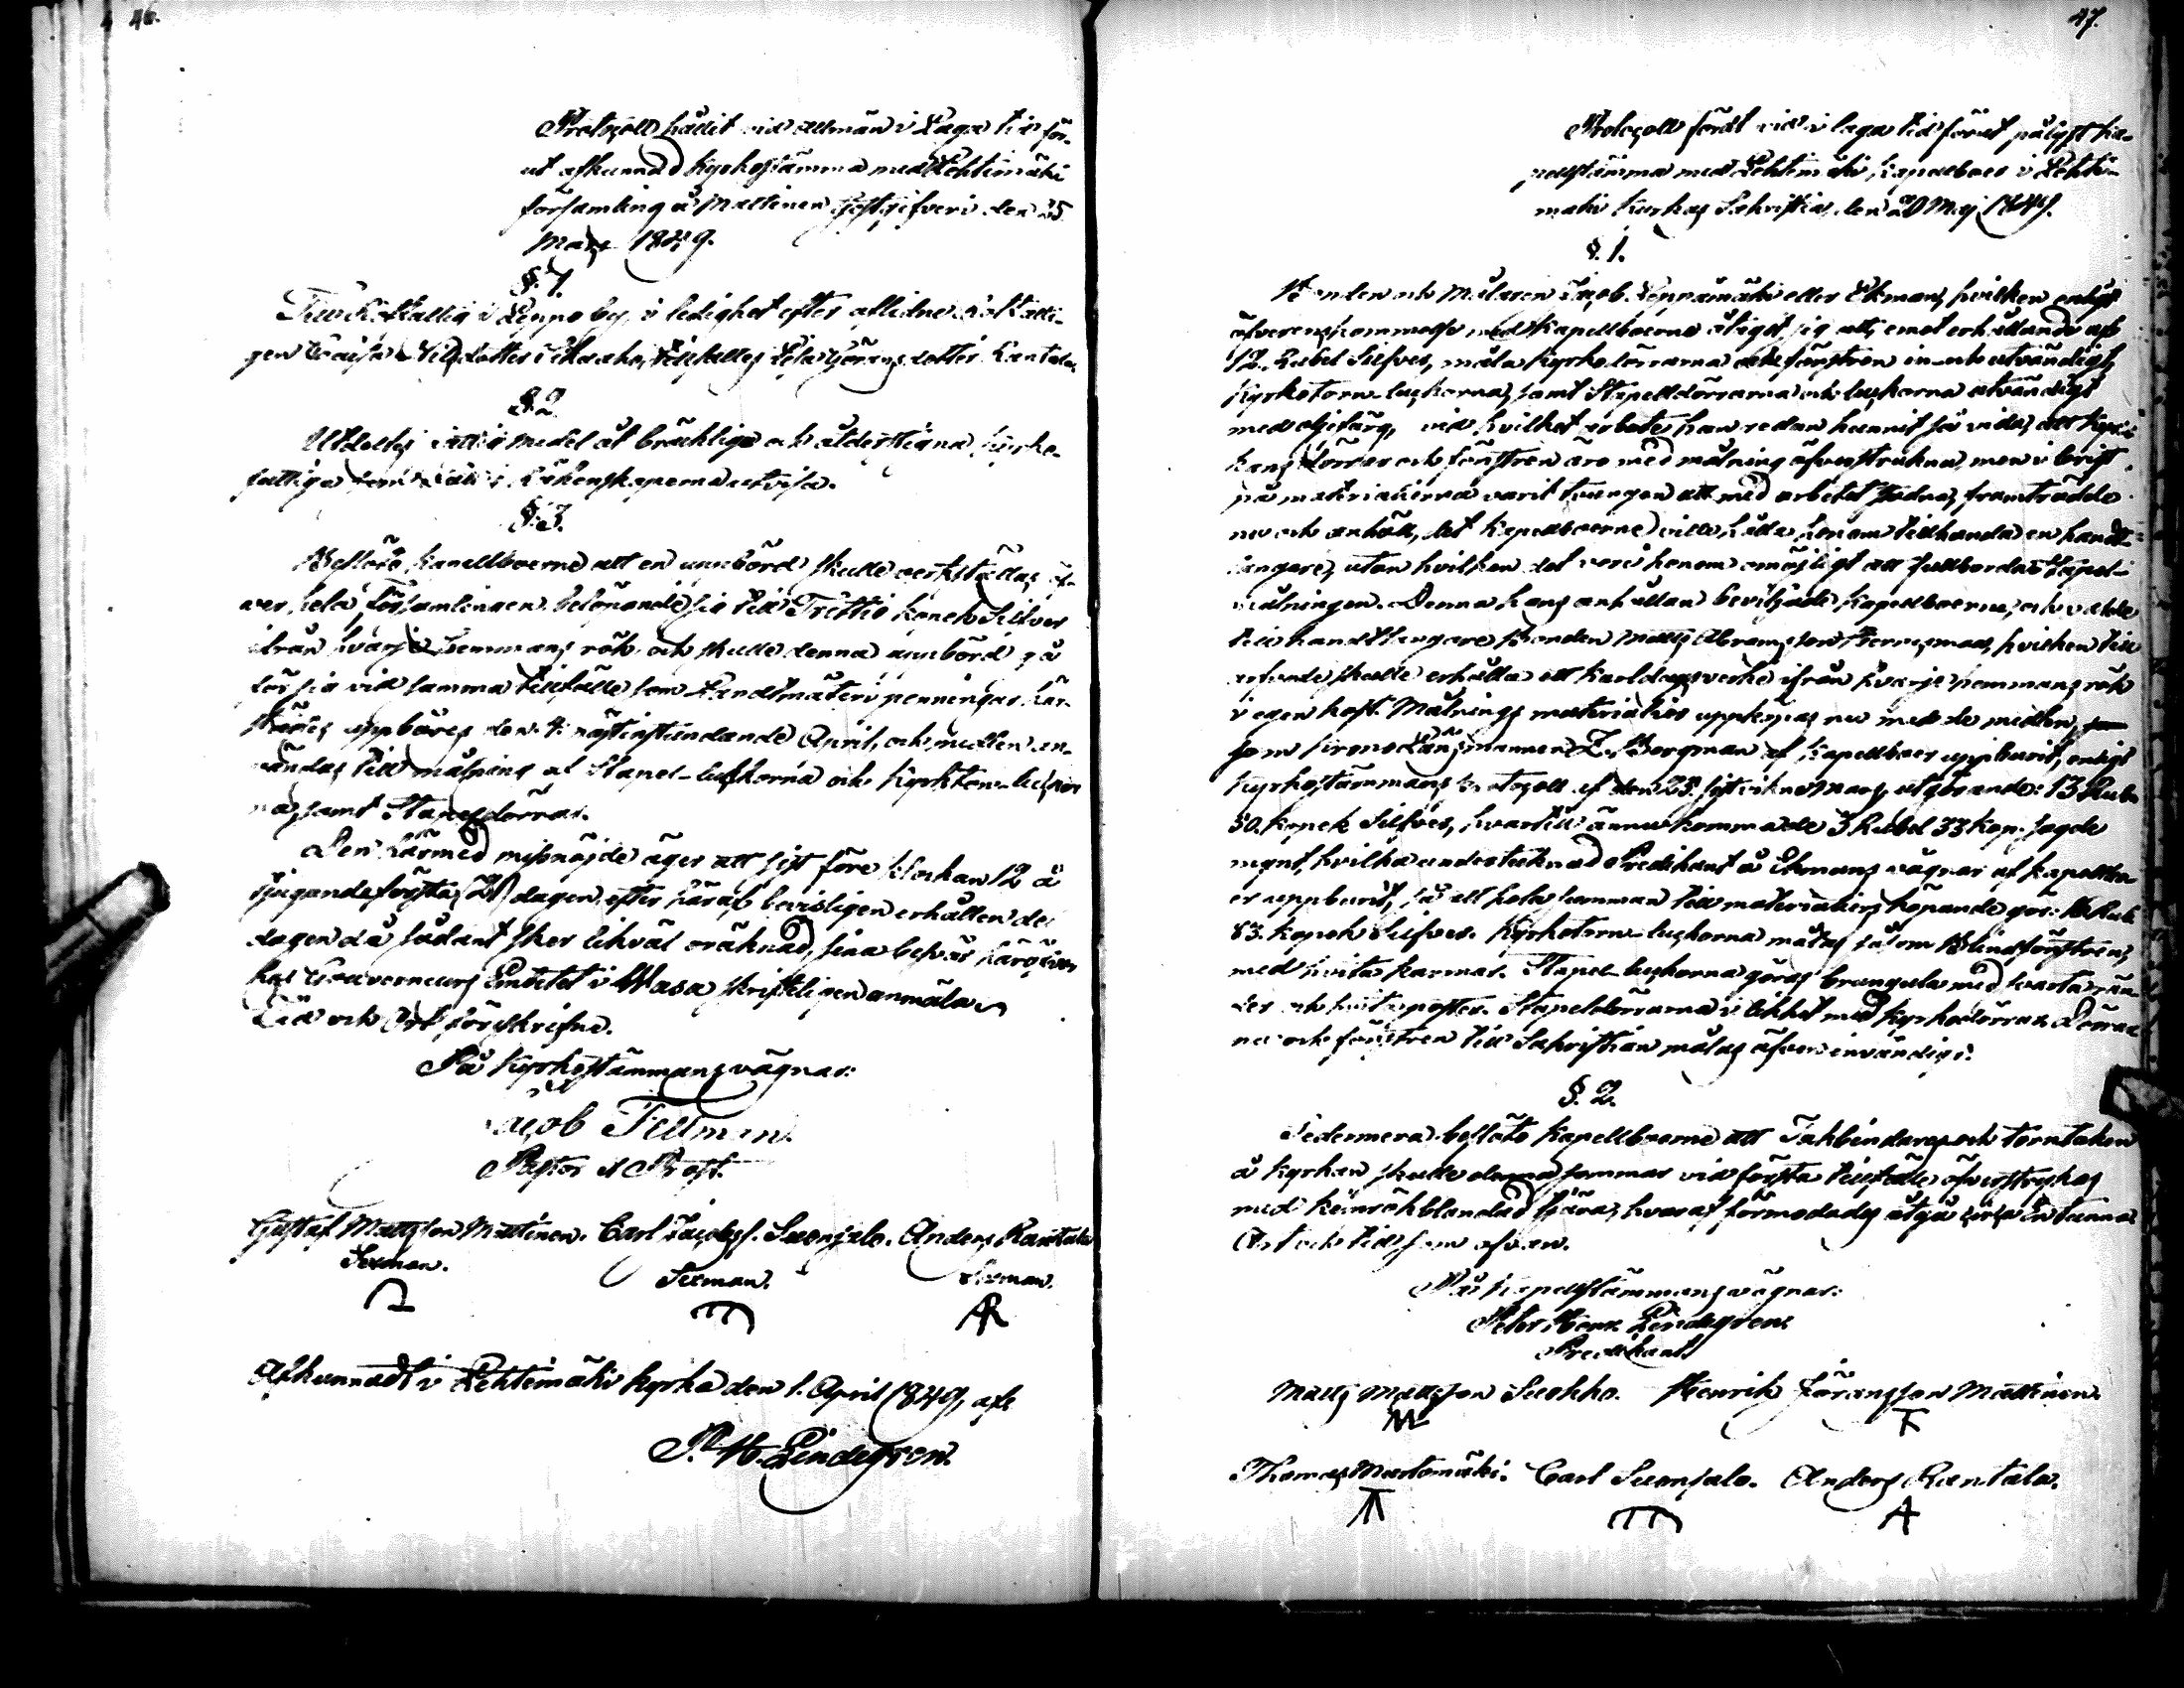 46.
Protocoll hållit vid allmän i Laga tid för-
ut afkunnad Kyrkostämma med Lehtimäki
församling å Mattinen Gästgifveri den 25
Mars 1849.
§. 1.
Till Rotfattig i Leppo by, i ledighet efter aflidne Rotfatti-
gen Caisa Nilsdotter tillsattes Lisa Göransdotter Rantala.
§. 2.
Utdeltes fattig medel åt bräcklige och ålderstigna kyrko-
fattiga som Räkenskaperna utvisa.
§. 3.
Beslöto Kapellboerne att en uppbörd skulle verkställas öf-
ver hela Församlingen belöpande sig till Trettio kopek Silfver
ifrån hvarje Hemmans rök och skulle denna uppbörd gå
för sig vid samma tillfälle som Landtmäteri penningar här-
städes uppbäres den 4 nästinstundande April, och medlen an-
vändas till målning af Stapel-luckorna och Kyrktorn-luckor
na, samt Stapeldörrar.
Den härmed missnöjde äger att sist före klockan 12 å
tjugondeförsta (21) dagen efter häraf bevisligen erhållen del
dagen då sådant sker likväl oräknad, sina besvär häröfver
hos Gouverneurs Embetet i Wasa skrifteligen anmäla
Tid och Ort förskrifne.
På Kyrkostämmans vägnar:
Jacob Fellman
Pastor & Prost.
Gustaf Mattsson Mattinen. Carl Jacobss. Suonsalo. Anders Rantala
Sexman. Sexman. Sexman.
AR
Afkunnadt i Lehtimäki kyrka den 1. April 1849, af
P. H. Lindegren.
47.
Protocoll fördt vid i laga tid förut pålyst ka-
pellstämma med Lehtimäki Kapellboer i Lehti-
mäki Kyrkas Sakristia, den 20 Maj 1849.
§. 1.
Bonden och Målaren Jacob Leppämäki eller Ekman, hvilken enligt
öfverenskommelse med Kapellboerne åtagit sig att, emot erhållande af
12. Rubel Silfver, måla Kyrkodörrarna och fönstren in- och utvändigt,
Kyrkotorn-luckorna, samt Stapeldörrarna och luckorna utvändigt
med oljefärg, vid hvilket arbete han redan hunnit så vida, att Kyr-
kans dörrar och fönstren äro med målning öfverstrukna, men i brist
på materialierna varit tvungen att med arbetet stadna, framträdde
nu och anhöll, det Kapellboerne ville hålla honom tillhanda en handt-
langare, utan hvilken det vore honom omöjligt att fullborda Stapel-
målningen. Denna hans anhållan beviljade Kapellboerne, och valde
till handtlangare Bonden Matts Abramsson hvilken till
arfvode skulle erhålla ett karldagsverke ifrån hvarje hemmans rök
i egen kost. Målnings materialier uppköpas nu med de medlen,
som KronoLänsmannen Z. Bergman af Kapellboer uppburit, enligt
Kyrkostämmans Protocoll af den 25. sistvikne Mars, utgörande: 13 Rub.
50. kopek Silfver, hvartill ännu kommo de 3 Rubel 33 kop. sagde
mynt, hvilka undertecknad Predikant å Ekmans vägnar af kapellbo-
er uppburit, så att hela summan till materialiers köpande gör: 16 Rub.
83. kopek Silfver. Kyrkotorn-luckorna målas såsom Blindfönstren,
med hvita karmar. Stapel-luckorna göras brungula med svarta rän-
der och hvita poster. Stapeldörrarna i likhet med Kyrkodörrar. Dörrar
na och fönstren till Sakristian målas äfven invändigt.
§. 2.
Sedermera beslöto Kapellboerne att Takbindarop och torntaken
å kyrkan skulle denna sommar vid första tillfälle öfverstrykas
med kimrökblandad tjära, hvaraf förmodades åtgå cirka En tunna
Ort och tid som ofvan.
På Kapellstämmans vägnar:
Peter Henr. Lindegren
Predikant.
Matts Mattsson Suokko. Henrik Göransson Mattinen.
Thomas Martomäki. Carl Suonsalo. Anders Rantala.